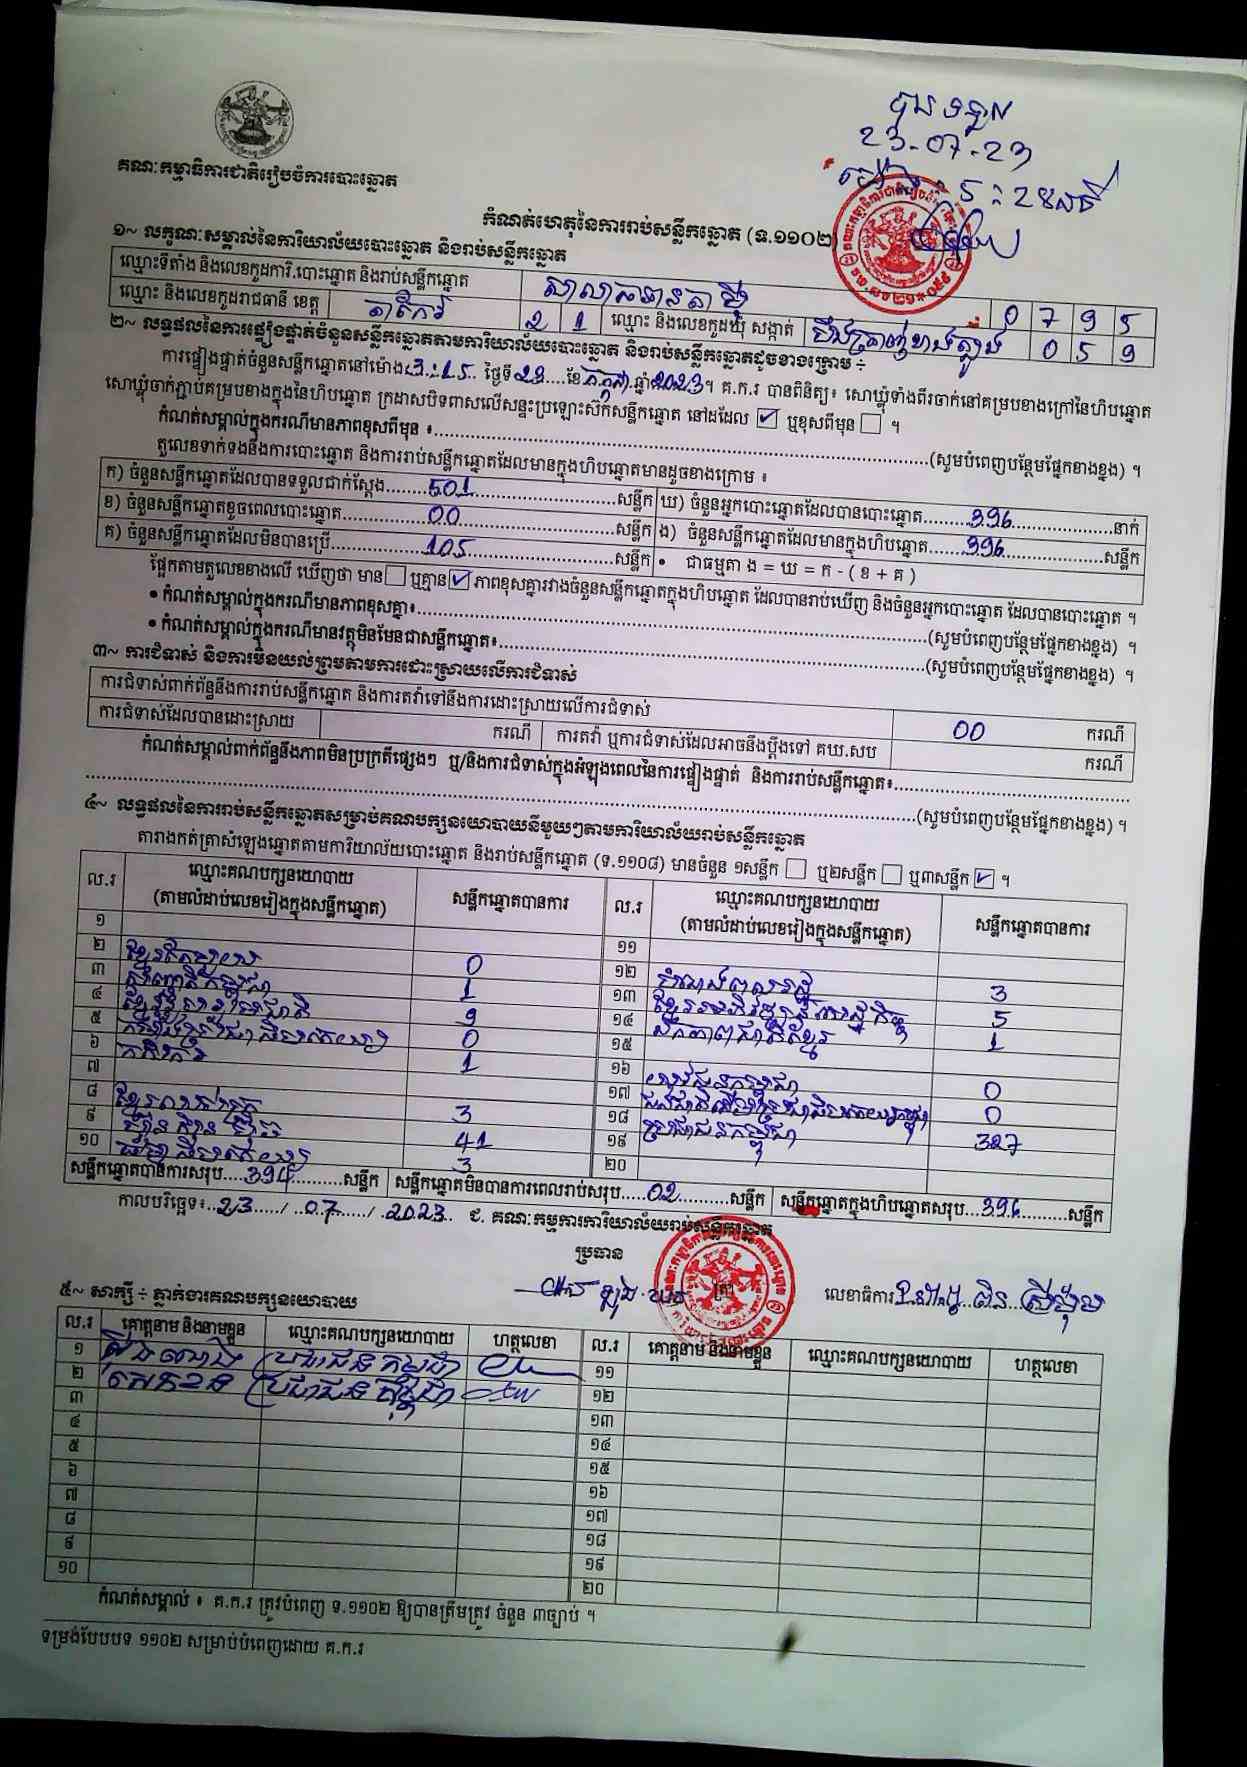 គណៈកម្មាធិការជាតិរៀបចំការបោះឆ្នោត
23-07-23
កំណត់ហេតុនៃការរាប់សន្លឹកឆ្នោត (ទ.១១០២)
១~ លក្ខណៈសម្គាល់នៃការិយាល័យបោះឆ្នោត និងរាប់សន្លឹកឆ្នោត
ឈ្មោះទីតាំង និងលេខកូដការិ.បោះឆ្នោត និងរាប់សន្លឹកឆ្នោត 0 7 9 5
ឈ្មោះ និងលេខកូដរាជធានី ខេត្ត តាកែវ 2 1 ឈ្មោះ និងលេខកូដឃុំ សង្កាត់ បឹងត្រាញ់ខាងត្បូង 0 5 9
២~ លទ្ធផលនៃការផ្ទៀងផ្ទាត់ចំនួនសន្លឹកឆ្នោតតាមការិយាល័យបោះឆ្នោត និងរាប់សន្លឹកឆ្នោតដូចខាងក្រោម ÷
ការផ្ទៀងផ្ទាត់ចំនួនសន្លឹកឆ្នោតនៅម៉ោង 3:15 ថ្ងៃទី 23 ខែ កក្កដា ឆ្នាំ 2023 ។ គ.ក.រ បានពិនិត្យ៖ សោឃ្លុំទាំងពីរចាក់នៅគម្របខាងក្រៅនៃហិបឆ្នោត
សោឃ្លុំចាក់ភ្ជាប់គម្របខាងក្នុងនៃហិបឆ្នោត ក្រដាសបិទពាសលើសន្ទះប្រឡោះស៊កសន្លឹកឆ្នោត នៅដដែល ☑ ឬខុសពីមុន ☐ ។
កំណត់សម្គាល់ក្នុងករណីមានភាពខុសពីមុន ៖ (សូមបំពេញបន្ថែមផ្នែកខាងខ្នង) ។
តួលេខទាក់ទងនឹងការបោះឆ្នោត និងការរាប់សន្លឹកឆ្នោតដែលមានក្នុងហិបឆ្នោតមានដូចខាងក្រោម ៖
ក) ចំនួនសន្លឹកឆ្នោតដែលបានទទួលជាក់ស្តែង 501 សន្លឹក ឃ) ចំនួនអ្នកបោះឆ្នោតដែលបានបោះឆ្នោត 396 នាក់
ខ) ចំនួនសន្លឹកឆ្នោតខូចពេលបោះឆ្នោត 00 សន្លឹក ង) ចំនួនសន្លឹកឆ្នោតដែលមានក្នុងហិបឆ្នោត 396 សន្លឹក
គ) ចំនួនសន្លឹកឆ្នោតដែលមិនបានប្រើ 105 សន្លឹក • ជាធម្មតា ង = ឃ = ក - ( ខ + គ )
ផ្អែកតាមតួលេខខាងលើ ឃើញថា មាន ☐ ឬគ្មាន ☑ ភាពខុសគ្នារវាងចំនួនសន្លឹកឆ្នោតក្នុងហិបឆ្នោត ដែលបានរាប់ឃើញ និងចំនួនអ្នកបោះឆ្នោត ដែលបានបោះឆ្នោត ។
• កំណត់សម្គាល់ក្នុងករណីមានភាពខុសគ្នា៖ (សូមបំពេញបន្ថែមផ្នែកខាងខ្នង) ។
• កំណត់សម្គាល់ក្នុងករណីមានវត្ថុមិនមែនជាសន្លឹកឆ្នោត៖ (សូមបំពេញបន្ថែមផ្នែកខាងខ្នង) ។
៣~ ការជំទាស់ និងការមិនយល់ព្រមតាមការដោះស្រាយលើការជំទាស់
ការជំទាស់ពាក់ព័ន្ធនឹងការរាប់សន្លឹកឆ្នោត និងការតវ៉ាទៅនឹងការដោះស្រាយលើការជំទាស់ 00 ករណី
ការជំទាស់ដែលបានដោះស្រាយ ករណី ការតវ៉ា ឬការជំទាស់ដែលអាចនឹងប្តឹងទៅ គឃ.សប ករណី
កំណត់សម្គាល់ពាក់ព័ន្ធនឹងភាពមិនប្រក្រតីផ្សេងៗ ឬ/និងការជំទាស់ក្នុងអំឡុងពេលនៃការផ្ទៀងផ្ទាត់ និងការរាប់សន្លឹកឆ្នោត៖
(សូមបំពេញបន្ថែមផ្នែកខាងខ្នង) ។
៤~ លទ្ធផលនៃការរាប់សន្លឹកឆ្នោតសម្រាប់គណបក្សនយោបាយនីមួយៗតាមការិយាល័យរាប់សន្លឹកឆ្នោត
តារាងកត់ត្រាសំឡេងឆ្នោតតាមការិយាល័យបោះឆ្នោត និងរាប់សន្លឹកឆ្នោត (ទ.១១០៨) មានចំនួន ១សន្លឹក ☐ ឬ២សន្លឹក ☐ ឬ៣សន្លឹក ☑ ។
ល.រ ឈ្មោះគណបក្សនយោបាយ (តាមលំដាប់លេខរៀងក្នុងសន្លឹកឆ្នោត) សន្លឹកឆ្នោតបានការ ល.រ ឈ្មោះគណបក្សនយោបាយ (តាមលំដាប់លេខរៀងក្នុងសន្លឹកឆ្នោត) សន្លឹកឆ្នោតបានការ
១ ១១
២ 0 ១២ 3
៣ 1 ១៣ 5
៤ 9 ១៤ ឯកភាពជាតិខ្មែរ 1
៥ 0 ១៥
៦ កសិករ 1 ១៦ យុវជនកម្ពុជា 0
៧ ១៧ 0
៨ 3 ១៨ ប្រជាជនកម្ពុជា 327
៩ 41 ១៩
១០ 3 ២០
សន្លឹកឆ្នោតបានការសរុប 394 សន្លឹក សន្លឹកឆ្នោតមិនបានការពេលរាប់សរុប 02 សន្លឹក សន្លឹកឆ្នោតក្នុងហិបឆ្នោតសរុប 396 សន្លឹក
កាលបរិច្ឆេទ៖ 23 / 07 / 2023 ជ. គណៈកម្មការការិយាល័យរាប់សន្លឹកឆ្នោត
ប្រធាន
លេខាធិការ
៥~ សាក្សី ÷ ភ្នាក់ងារគណបក្សនយោបាយ
ល.រ គោត្តនាម និងនាមខ្លួន ឈ្មោះគណបក្សនយោបាយ ហត្ថលេខា ល.រ គោត្តនាម និងនាមខ្លួន ឈ្មោះគណបក្សនយោបាយ ហត្ថលេខា
១ ប្រជាជនកម្ពុជា ១១
២ ប្រជាជនកម្ពុជា ១២
៣ ១៣
៤ ១៤
៥ ១៥
៦ ១៦
៧ ១៧
៨ ១៨
៩ ១៩
១០ ២០
កំណត់សម្គាល់ ៖ គ.ក.រ ត្រូវបំពេញ ទ.១១០២ ឱ្យបានត្រឹមត្រូវ ចំនួន ៣ច្បាប់ ។
ទម្រង់បែបបទ ១១០២ សម្រាប់បំពេញដោយ គ.ក.រ